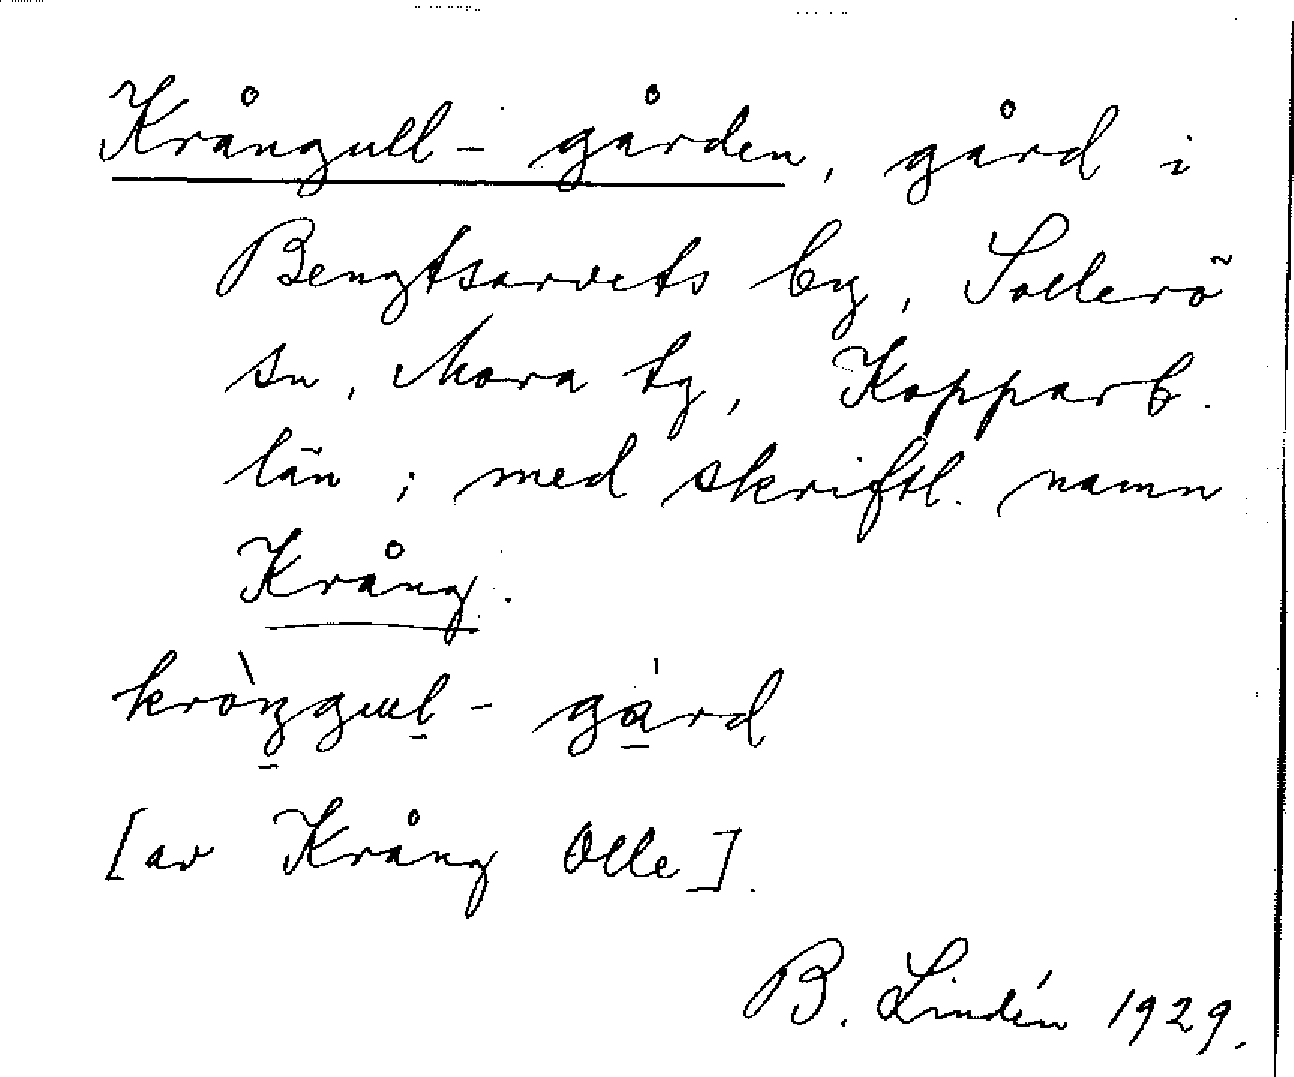 Krångull-gården, gård i
Bengtsarvets by, Sollerö
sn, Mora tg, Kopparb.
län; med skriftl. namn
Krång.
kròŋgul-gárd
[av Krång Olle].
B. Lindén 1929.